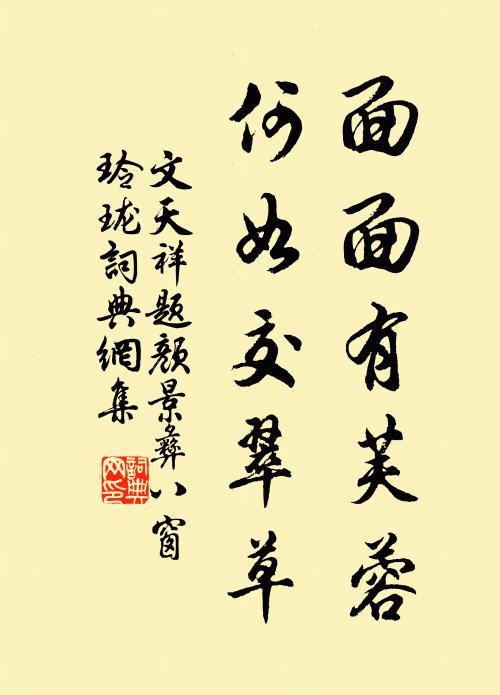 面面有芙蓉
何如交翠草
文天祥题颜景彝八窗
玲珑詞典網集
詞典网印